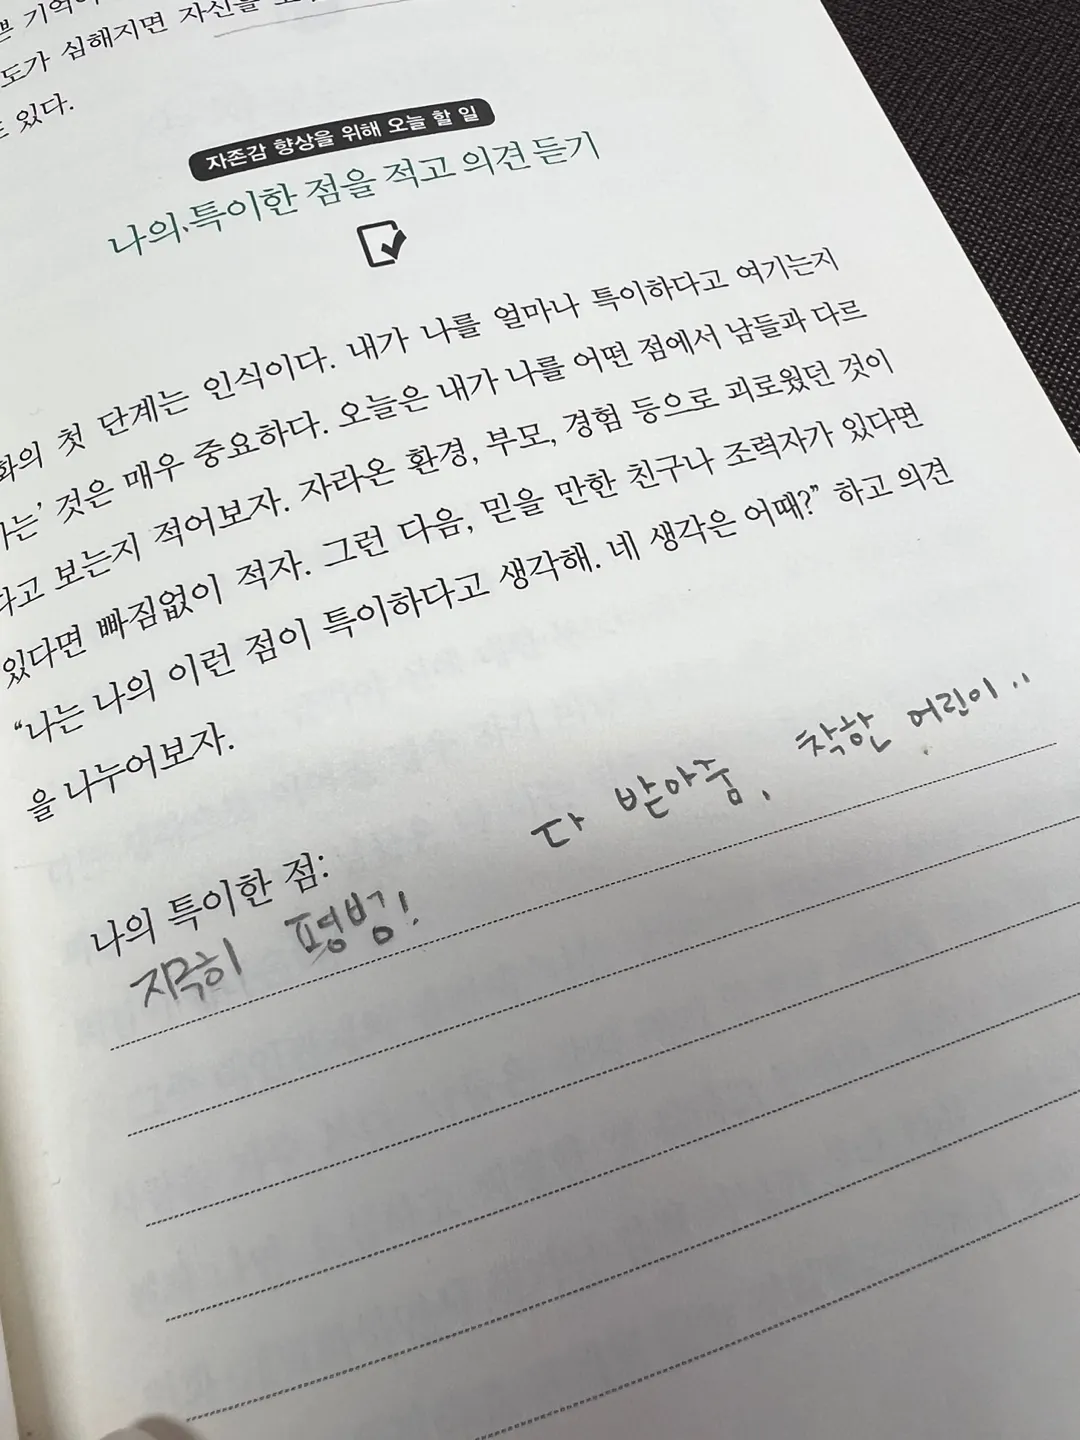 쁜 기억이
도가 심해지면 자신을
있다.
자존감 향상을 위해 오늘 할 일
나의 특이한 점을 적고 의견 듣기
화의 첫 단계는 인식이다. 내가 나를 얼마나 특이하다고 여기는지
하는’ 것은 매우 중요하다. 오늘은 내가 나를 어떤 점에서 남들과 다르
다고 보는지 적어보자. 자라온 환경, 부모, 경험 등으로 괴로웠던 것이
있다면 빠짐없이 적자. 그런 다음, 믿을 만한 친구나 조력자가 있다면
“나는 나의 이런 점이 특이하다고 생각해. 네 생각은 어때?” 하고 의견
을 나누어보자.
나의 특이한 점:
다 받아줌, 착한 어린이..
지극히 평범!